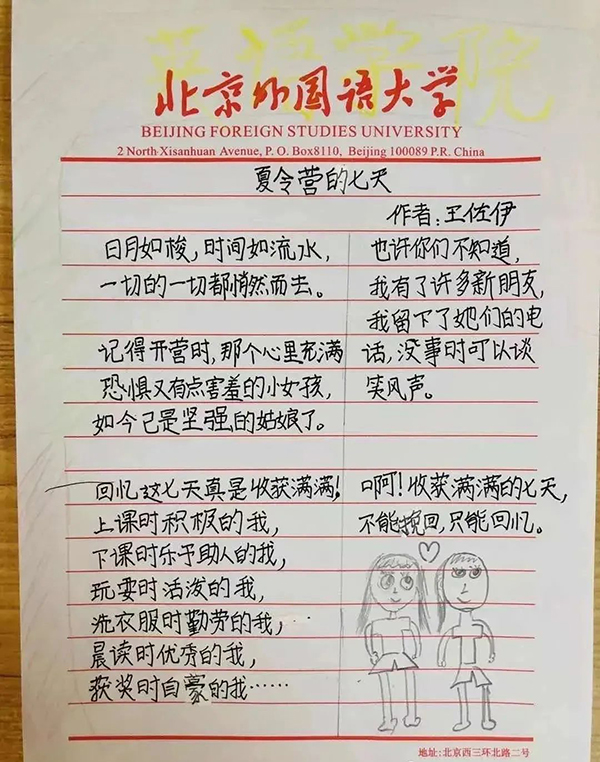 英语学院
北京外国语大学
BEIJING FOREIGN STUDIES UNIVERSITY
2 North Xisanhuan Avenue, P. O. Box8110, Beijing 100089 P.R. China
夏令营的七天
作者:王佐伊
日月如梭,时间如流水,
一切的一切都悄然而去。
记得开营时,那个心里充满
恐惧又有点害羞的小女孩,
如今已是坚强的姑娘了。
回忆这七天真是收获满满!
上课时积极的我,
下课时乐于助人的我,
玩耍时活泼的我,
洗衣服时勤劳的我,
晨读时优秀的我,
获奖时自豪的我……
也许你们不知道,
我有了许多新朋友,
我留下了她们的电
话,没事时可以谈
笑风声。
啊!收获满满的七天,
不能挽回,只能回忆。
地址:北京西三环北路二号